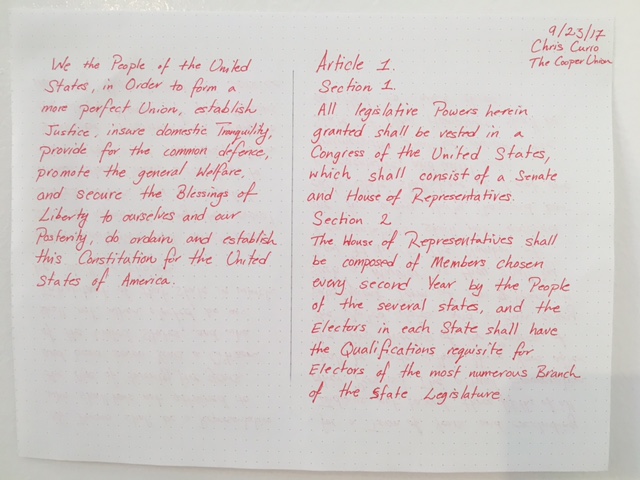 9/23/17
Chris Curio
The Cooper Union
We the People of the United
States, in Order to form a
more perfect Union, establish
Justice, insure domestic Tranquility,
provide for the common defence,
promote the general Welfare,
and secure the Blessings of
Liberty to ourselves and our
Posterity, do ordain and establish
this Constitution for the United
States of America.
Article 1.
Section 1.
All legislative Powers herein
granted shall be vested in a
Congress of the United States,
which shall consist of a Senate
and House of Representatives.
Section 2
The House of Representatives shall
be composed of Members chosen
every second Year by the People
of the several states, and the
Electors in each State shall have
the Qualifications requisite for
Electors of the most numerous Branch
of the State Legislature.